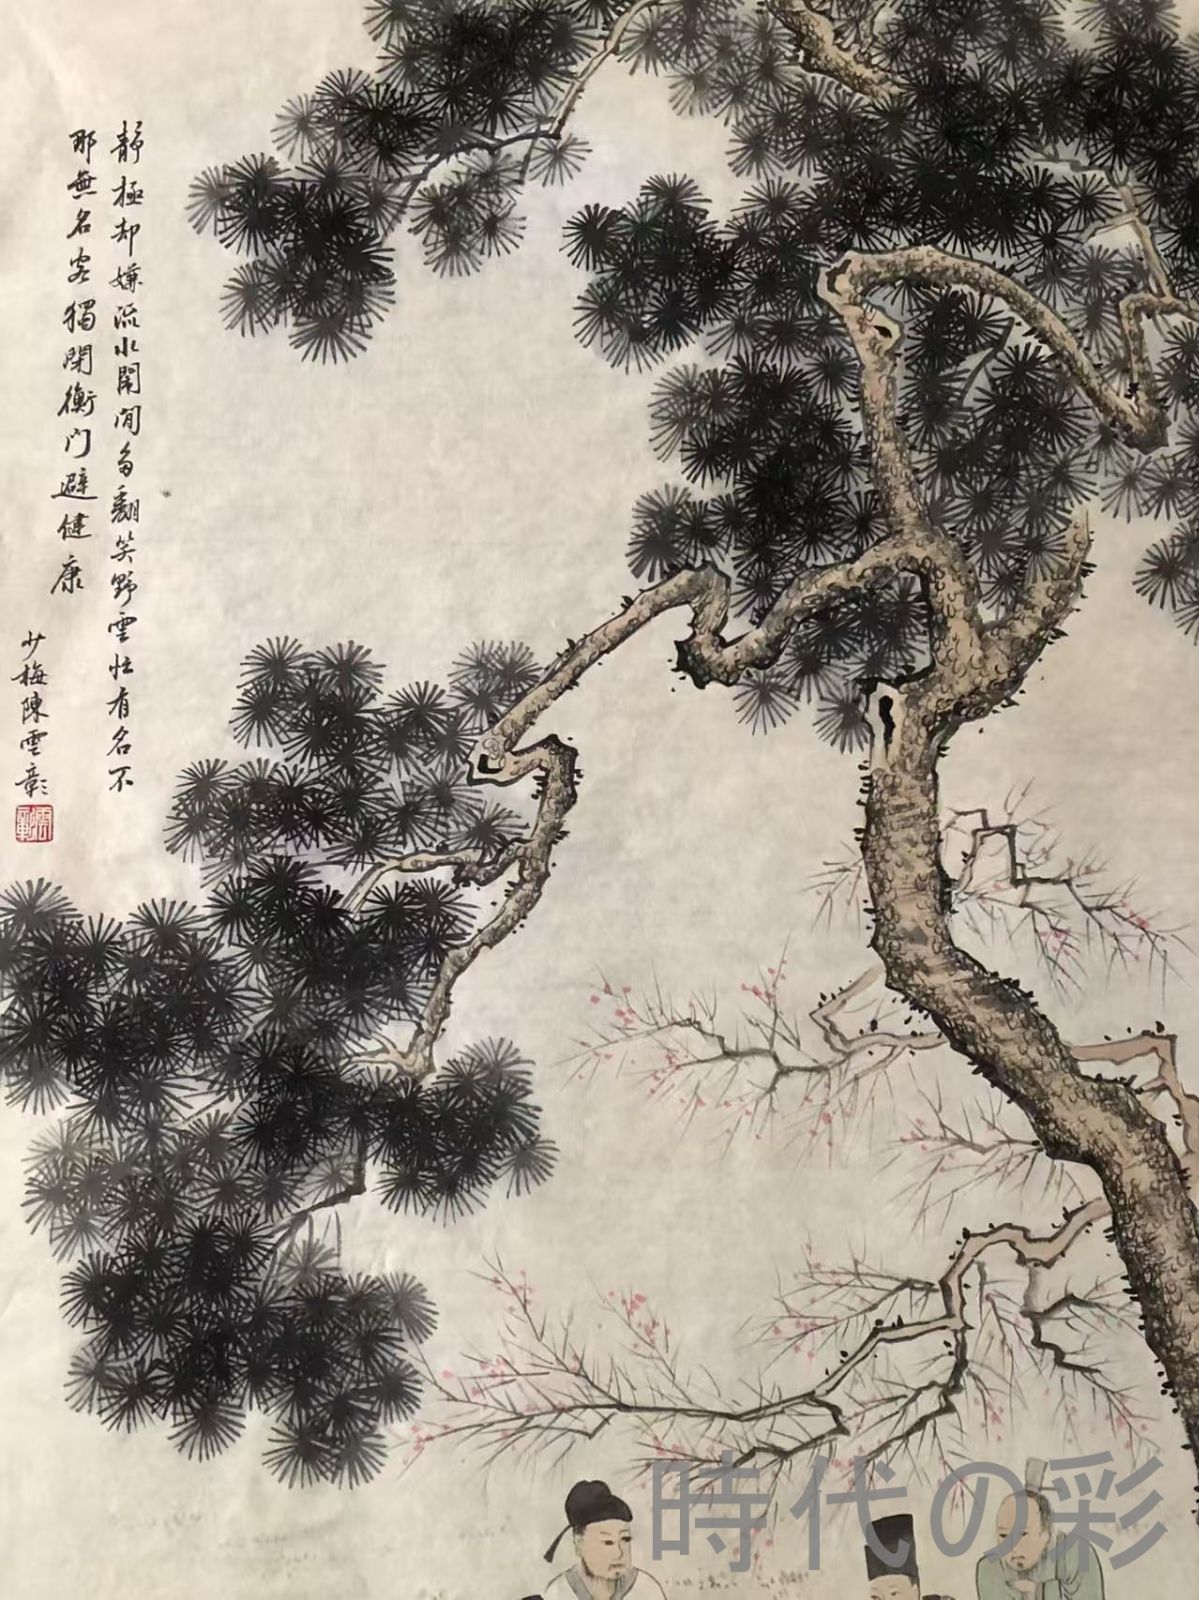 靜極却嫌流水鬧閒多翻笑野雲忙有名不
那無名客獨閉衡门避健康
少梅陳雲彰
雲彰
時代の彩